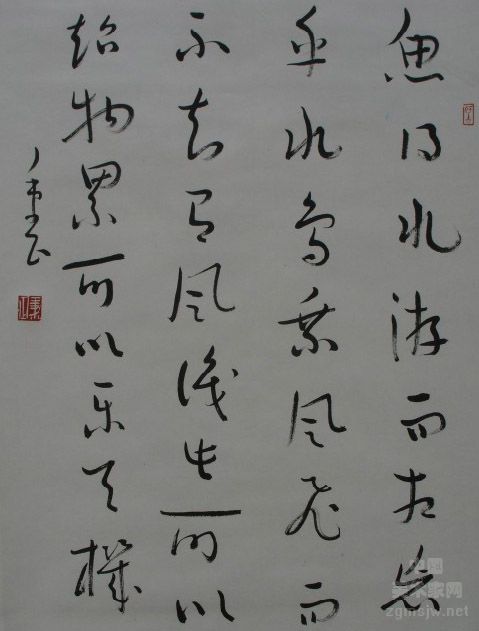 魚得水游而相忘
乎水鳥乘風飛而
不知有風識此可以
超物累可以樂天機
中国
美术家网
zgmsjw.net